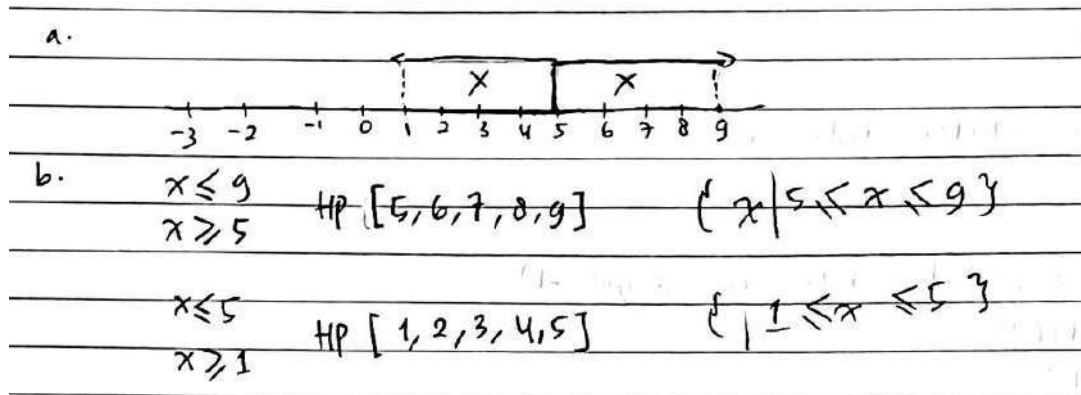 a.
x x
-3 -2 -1 0 1 2 3 4 5 6 7 8 9
b.
x ≤ 9 HP [5, 6, 7, 8, 9] { x | 5 ≤ x ≤ 9 }
x ≥ 5
x ≤ 5 HP [1, 2, 3, 4, 5] { | 1 ≤ x ≤ 5 }
x ≥ 1